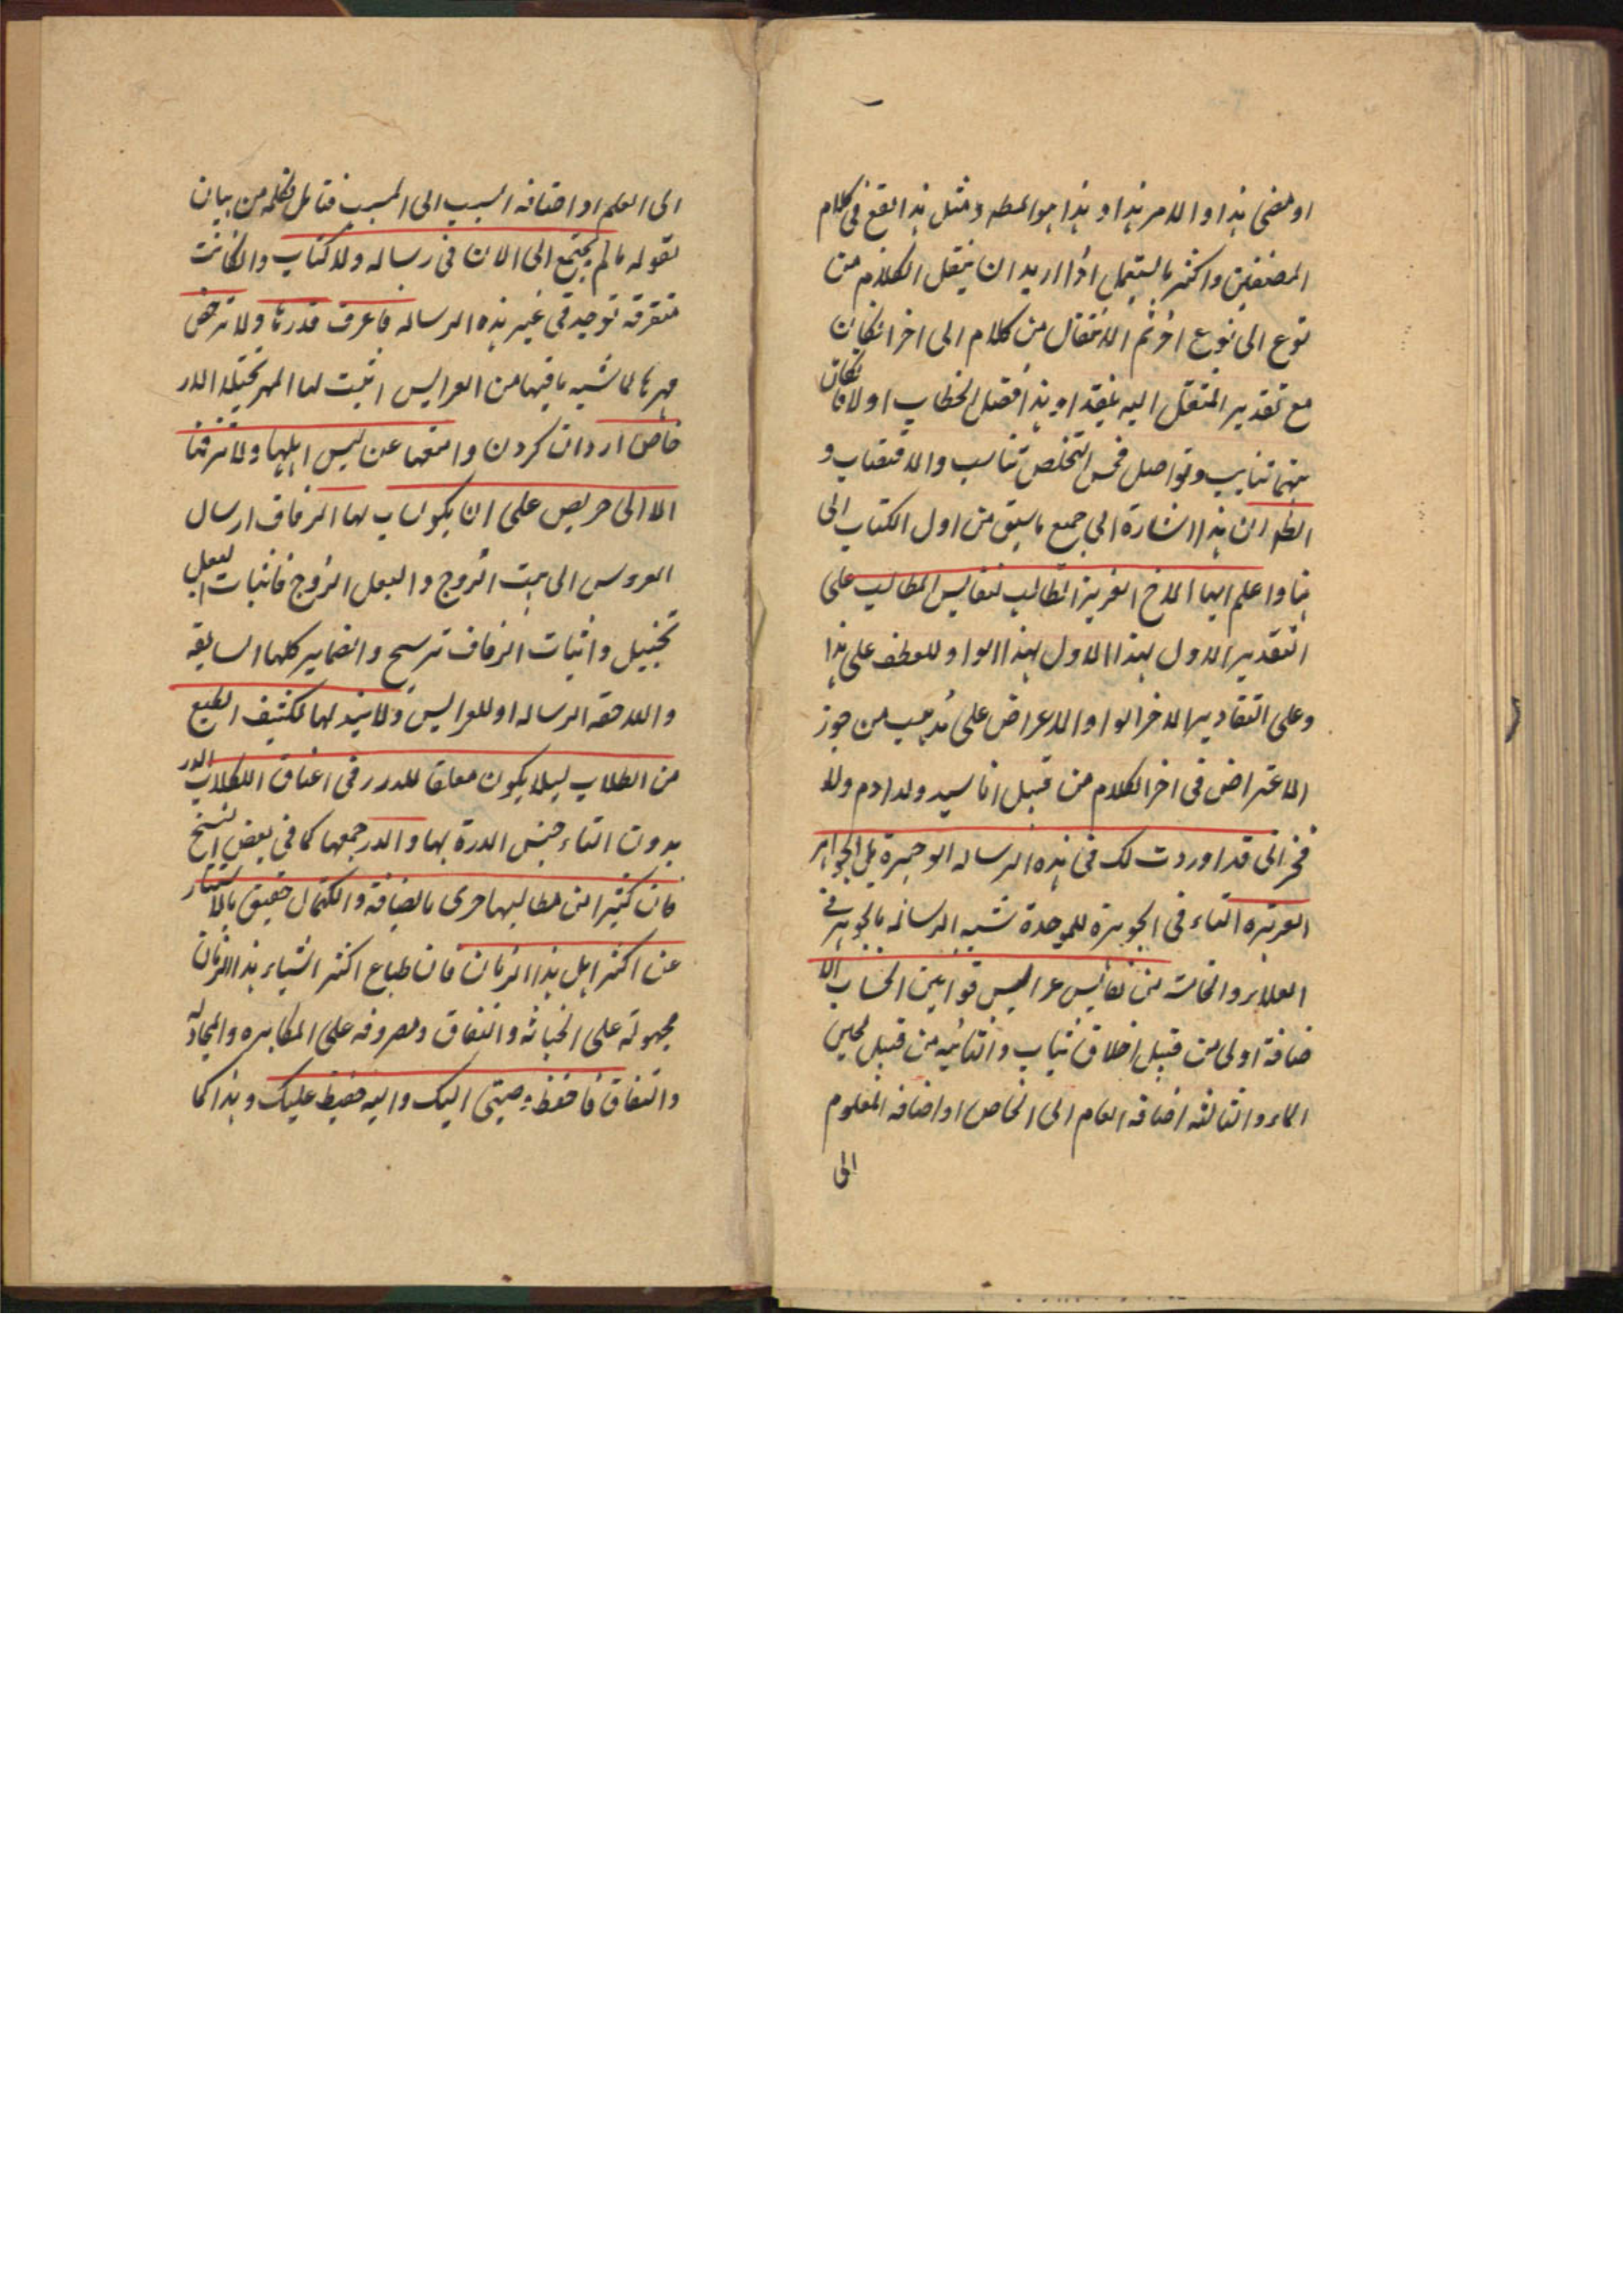 او مضى هذا او الامر هذا و هذا هو المطه و مثل هذا يقع فى كلام
المصنفين و اكثر ما يستعمل اذا اريد ان ينتقل الكلام من
نوع الى نوع اخر ثم الانتقال من كلام الى اخر انكان
مع تقدير المنتقل اليه بنقدا و هذا فصل الخطاب او لا فان كان
بينهما تناسب و تواصل فحسن التخلص تناسب و الاقتضاب و
الظ ان هذا اشارة الى جميع ما سبق من اول الكتاب الى
هنا و اعلم ايها الاخ العزيز الطالب لنفايس المطالب على
التقدير الاول لهذا الاول لهذا الواو للعطف على هذا
و على التقادير الاخر الواو الاعراض على مذهب من جوز
الاعتراض فى اخر الكلام من قبيل انا سيد ولد ادم ولا
فخر انى قد اوردت لك فى هذه الرساله الوجيزة بل الجواهر
العزيزه التاء فى الجوهرة للوحدة شبه الرساله بالجوهر فى
العلاء و الخاسة من نفايس عرايس قوانين الحساب الا
ضافة اولى من قبيل اخلاق ثياب و الثانيه من قبيل لجين
الماء و الثالثه اضافه العام الى الخاص او اضافه المعلوم
الى
الى العلم او اضافه السبب الى المسبب فتامل بكلمه من بيان
لقوله ما لم يجتمع الى الان فى رساله ولا كتاب و ان كانت
متفرقه توجد فى غير هذه الرساله فاعرف قدرها و لا ترخص
مهرها لما شبه ما فيها من العرايس اثبت لها المهر تخيلا الدر
خاص ارزان كردن و امنعها عن ليس اهلها و لا تزفها
الا الى حريص على ان يكون لها الزفاف ارسال
العروس الى بيت الزوج و البعل الزوج فاثبات البعل
تخييل و اثبات الزفاف ترشيح و الضماير كلها السابقه
و اللاحقه الرساله او للعرايس و لا تبذلها لكثيف الطبع
من الطلاب ليلا يكون معلقا للدرر فى اعناق الكلاب الدر
بدون التاء جنس الدرة بها و الدرر جمعها كما فى بعض النسخ
فان كثيرا من مطالبها حرى بالصيانة و الكتمان حقيق بالاستتار
عن اكثر اهل هذا الزمان فان طباع اكثر اشياء هذا الزمان
مجبولة على الخباثه و النفاق و مصروفه على المكابره و المجادله
و النفاق فاحفظ وصيتى اليك و الله حفيظ عليك و هذا كما